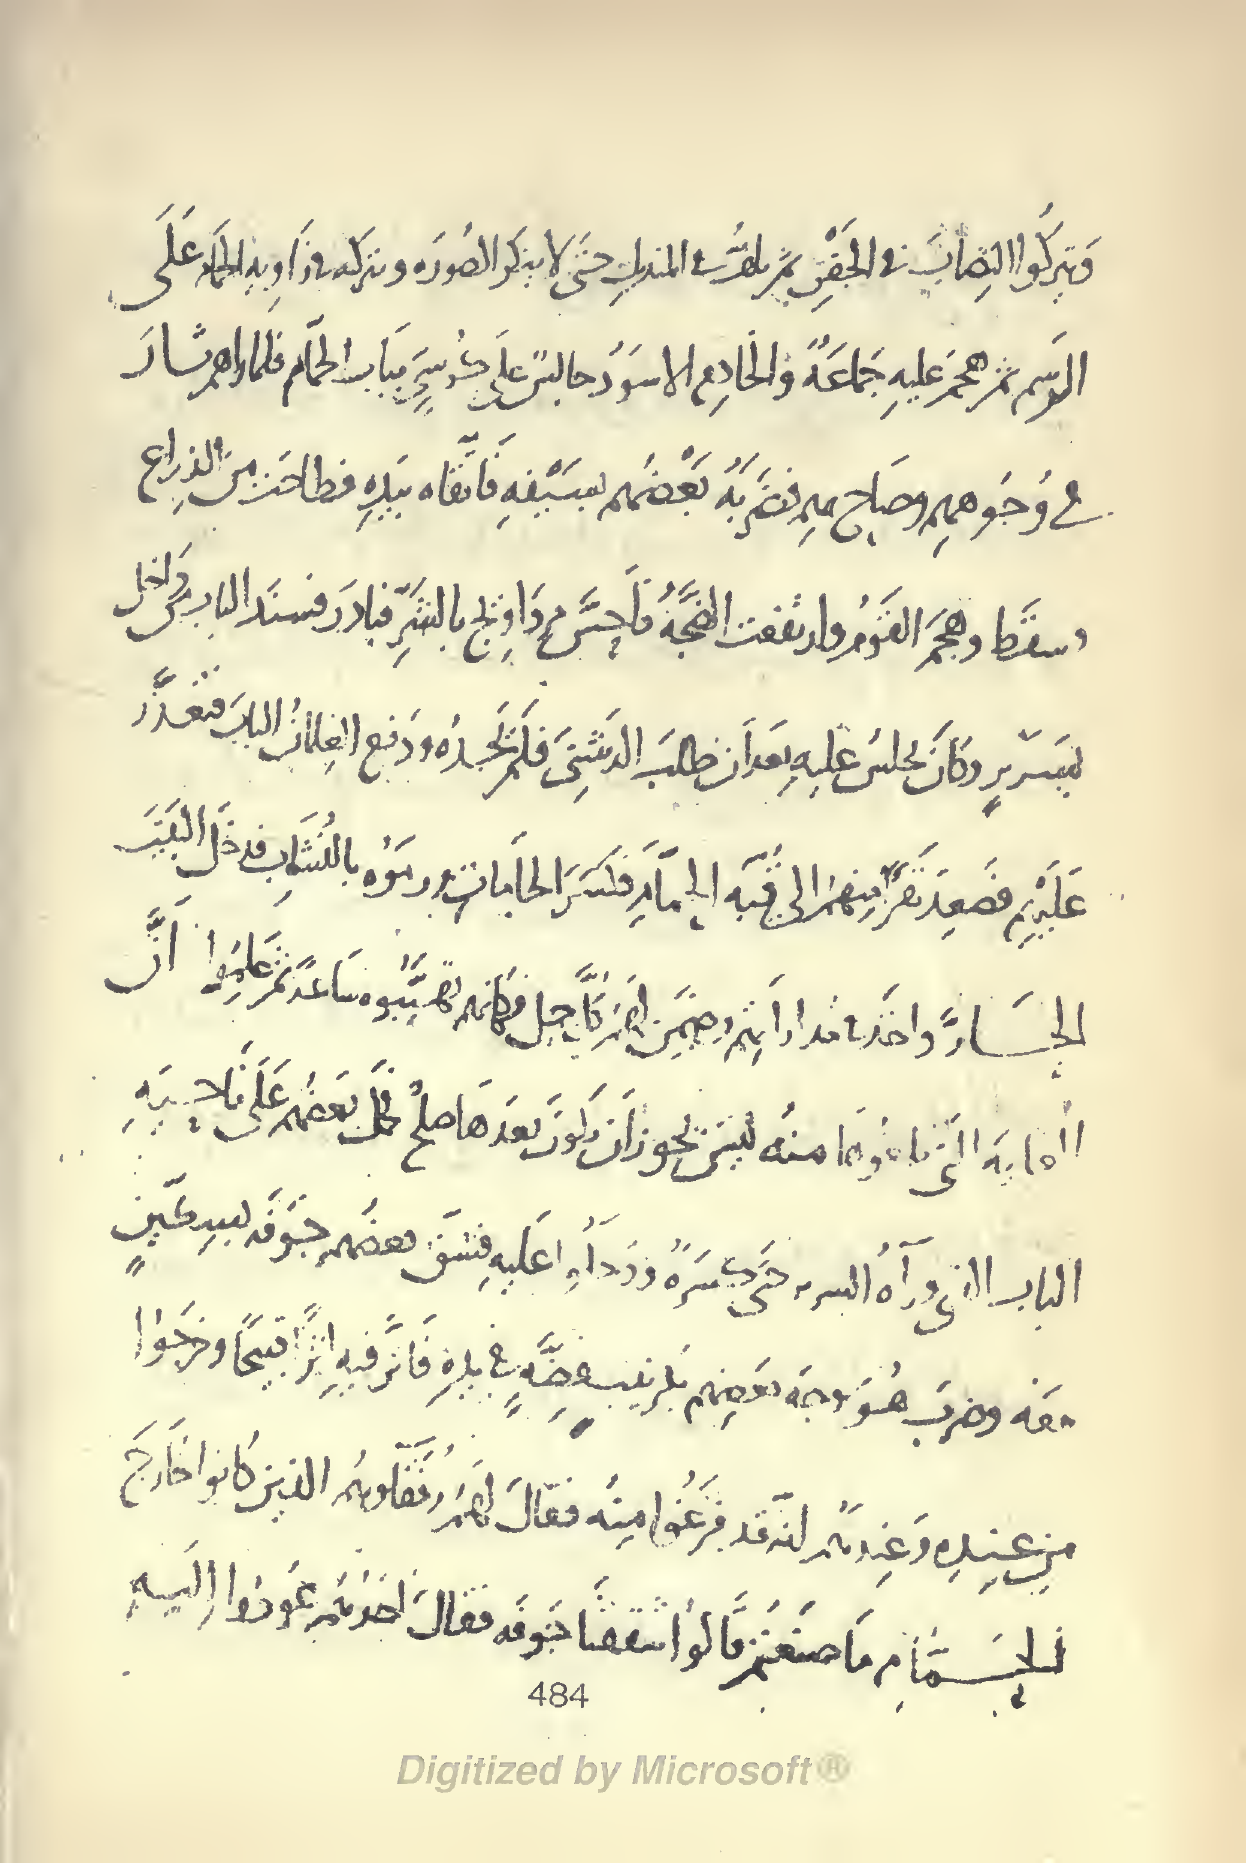 فيتركوا النصاب في الجفن ثم يلف في المنديل حتى لا ينكر الصورة ويتركه في زاوية الحمام على
الرسم ثم هجم عليه جماعة والخادم الاسود جالس على كرسي بباب الحمام فلما راهم ثار
في وجوههم وصاح بهم فضربه بعضهم بسيفه فاتقاه بيده فطاحت من الذراع
وسقط وهجم القوم وارتفعت الضجة فاحس مرداويج بالشر فبادر فسند الباب من داخل
بسرير وكان يجلس عليه بعد ان طلب الدشنى فلم يجده ودفع الغلمان الباب فتعذر
عليهم فصعد نفر منهم الى قبة الحمام فكسر الجامات ورموه بالنشاب فدخل البيت
الحار واخذ في مداراتهم وضمن لهم كل جميل فكانهم تهيبوه ساعة ثم علموا ان
الغاية التي بلغوها منه ليس يجوز ان يكون بعدها صلح فحمل بعضهم على ناحية
الباب الذي ورآه السرير حتى كسره ودخلوا عليه فشق بعضهم جوفه بسكين
معه وضرب هو وجه بعضهم بكرنيب فضة في يده فاثر فيه اثرا قبيحا وخرجوا
من عنده وعندهم انه قد فرغوا منه فقال لهم رفقاوهم الذين كانوا خارج
الحمام ما صنعتم قالوا شققنا جوفه فقال احدهم عودوا اليه
484
Digitized by Microsoft®